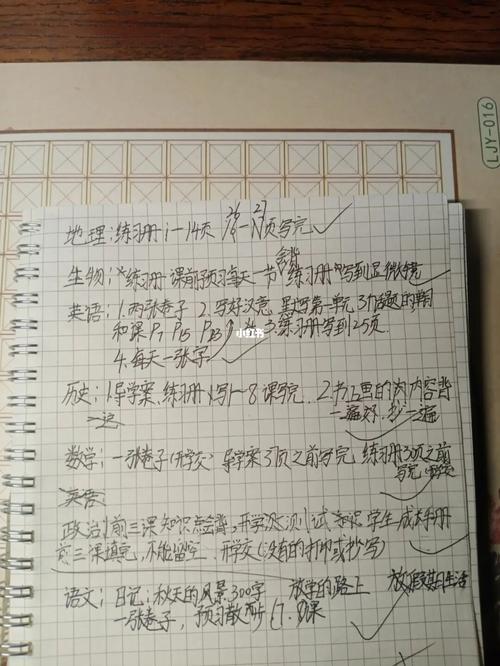 LJY-016
26 27
地理:练习册1-14页 页写完
生物:*练习册 课前预习每天一节 练习册*写到显微镜
英语:1.两张卷子 2.写好汉意 第一单元3个话题的单词
和课P7 P15 P23 3.练习册写到25页
小红书
4.每天一张字
历史:1.导学案、练习册 写1-8课写完. 2.书上里的内容背
一遍 一遍好,抄一遍
数学:一张卷子(开学交) 导学案37页之前写完 练习册30页之前
写完
英语
政治:前三课知识点会背,开学测试 知识 学生成长手册
前三课填完,不能留空 开学交(没有的打印或抄写)
语文:日记:秋天的风景300字 放学的路上 放假期生活
一张卷子,预习 7.8课